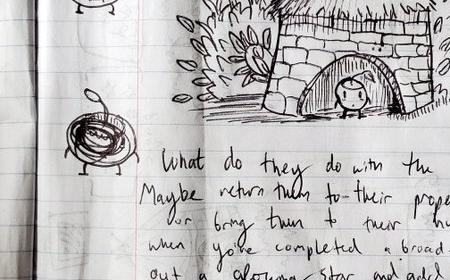 What do they do with the
Maybe return them to their prope
or bring them to their h
when you've completed a broad
out a glowing star and add